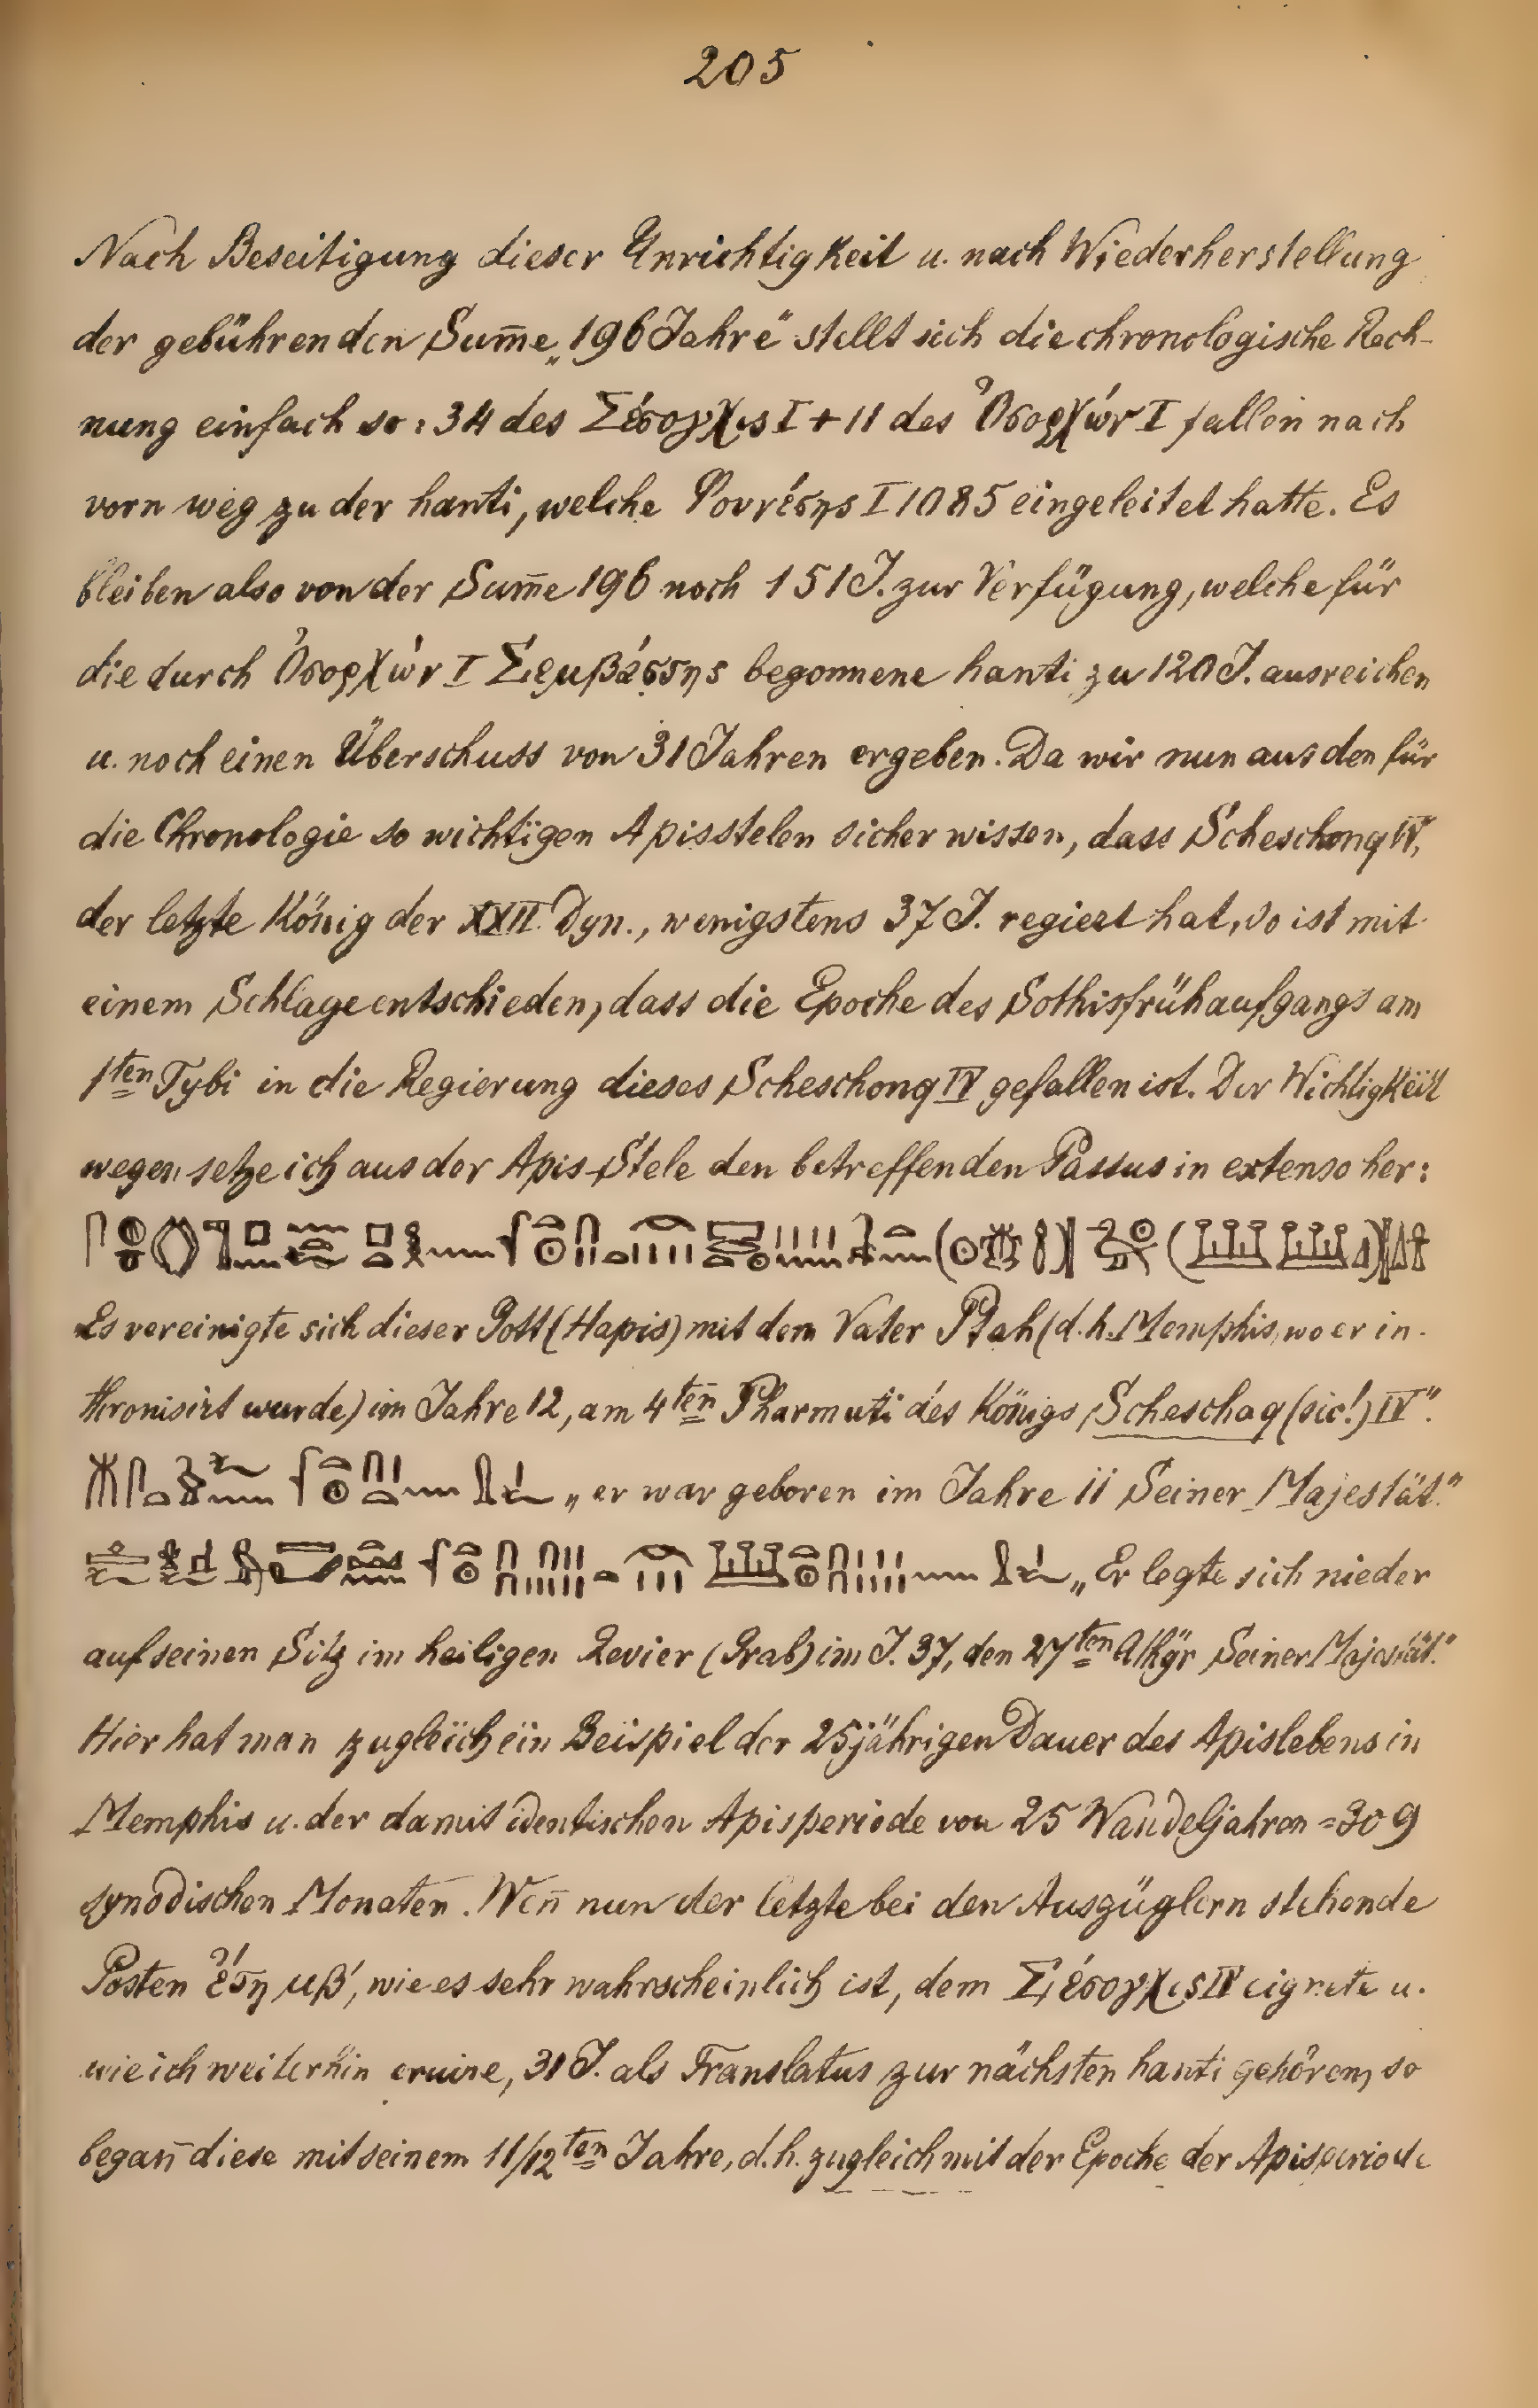 205
Nach Beseitigung dieser Unrichtigkeit u. nach Wiederherstellung
der gebührenden Sum̅e „196 Jahre“ stellt sich die chronologische Rech-
nung einfach so: 34 des Σέσογχις I + 11 des Ὀσορχών I fallen nach
vorn weg zu der hanti, welche I 1085 eingeleitet hatte. Es
bleiben also von der Sum̅e 196 noch 151 J. zur Verfügung, welche für
die durch Ὀσορχών I begonnene hanti zu 120 J. ausreichen
u. noch einen Überschuss von 31 Jahren ergeben. Da wir nun aus den für
die Chronologie so wichtigen Apisstelen sicher wissen, dass Scheschonq IV,
der letzte König der XXII. Dyn., wenigstens 37 J. regiert hat, so ist mit
einem Schlage entschieden, dass die Epoche des Sothisfrühaufgangs am
1ten Tybi in die Regierung dieses Scheschonq IV gefallen ist. Der Wichtigkeit
wegen setze ich aus der Apis-Stele den betreffenden Passus in extenso her:
Es vereinigte sich dieser Gott (Hapis) mit dem Vater Ptah (d. h. Memphis, wo er in-
thronisirt wurde) im Jahre 12, am 4ten Pharmuti des Königs Scheschaq (sic!) IV“.
„er war geboren im Jahre 11 Seiner Majestät.“
„Er legte sich nieder
auf seinen Sitz im heiligen Revier (Grab) im J. 37, den 27ten Athyr Seiner Majestät.“
Hier hat man zugleich ein Beispiel der 25jährigen Dauer des Apislebens in
Memphis u. der damit identischen Apisperiode von 25 Wandeljahren = 309
synodischen Monaten. Wen̅ nun der letzte bei den Auszüglern stehende
Posten ἔτη μβ′, wie es sehr wahrscheinlich ist, dem Σέσογχις IV eignete u.
wie ich weiterhin eruire, 31 J. als Translatus zur nächsten hanti gehören, so
began̅ diese mit seinem 11/12ten Jahre, d. h. zugleich mit der Epoche der Apisperiode